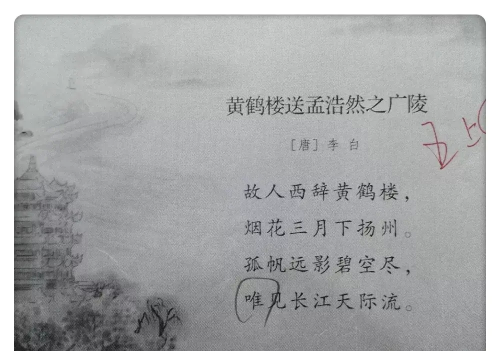 黄鹤楼送孟浩然之广陵
［唐］李白
故人西辞黄鹤楼，
烟花三月下扬州。
孤帆远影碧空尽，
唯见长江天际流。
五上